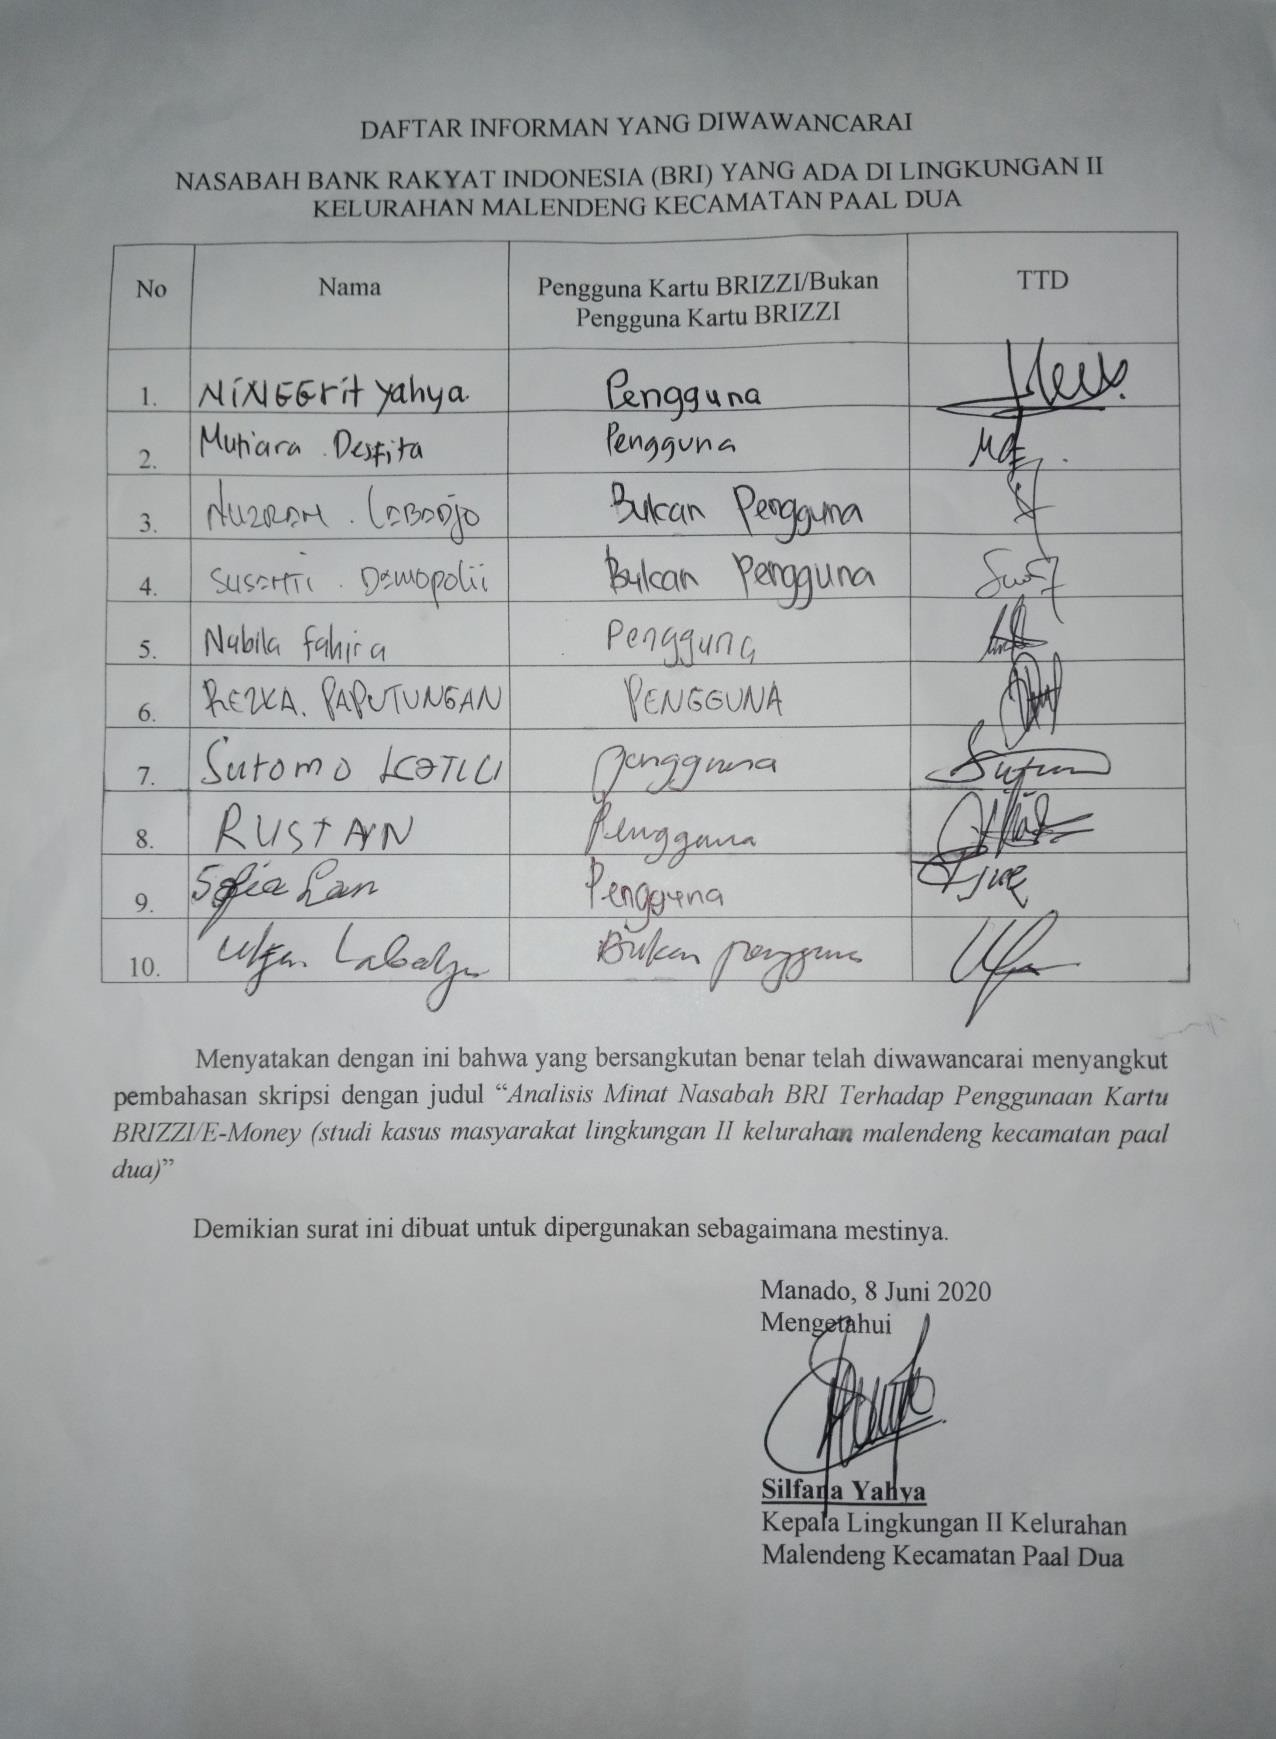 DAFTAR INFORMAN YANG DIWAWANCARAI
NASABAH BANK RAKYAT INDONESIA (BRI) YANG ADA DI LINGKUNGAN II
KELURAHAN MALENDENG KECAMATAN PAAL DUA
No Nama Pengguna Kartu BRIZZI/Bukan TTD
Pengguna Kartu BRIZZI
1. NiNGGrit Yahya Pengguna
2. Mutiara . Desfita Pengguna
3. NUZRAH . LABADJO Bukan Pengguna
4. SUSANTI . DAMOPOLII Bukan Pengguna
5. Nabila Fahira Pengguna
6. REZKA. PAPUTUNGAN PENGGUNA
7. Sutomo KATILI Pengguna
8. RUSTAN Pengguna
9. Sofia Pengguna
10. Bukan pengguna
Menyatakan dengan ini bahwa yang bersangkutan benar telah diwawancarai menyangkut
pembahasan skripsi dengan judul “Analisis Minat Nasabah BRI Terhadap Penggunaan Kartu
BRIZZI/E-Money (studi kasus masyarakat lingkungan II kelurahan malendeng kecamatan paal
dua)”
Demikian surat ini dibuat untuk dipergunakan sebagaimana mestinya.
Manado, 8 Juni 2020
Mengetahui
Silfana Yahya
Kepala Lingkungan II Kelurahan
Malendeng Kecamatan Paal Dua